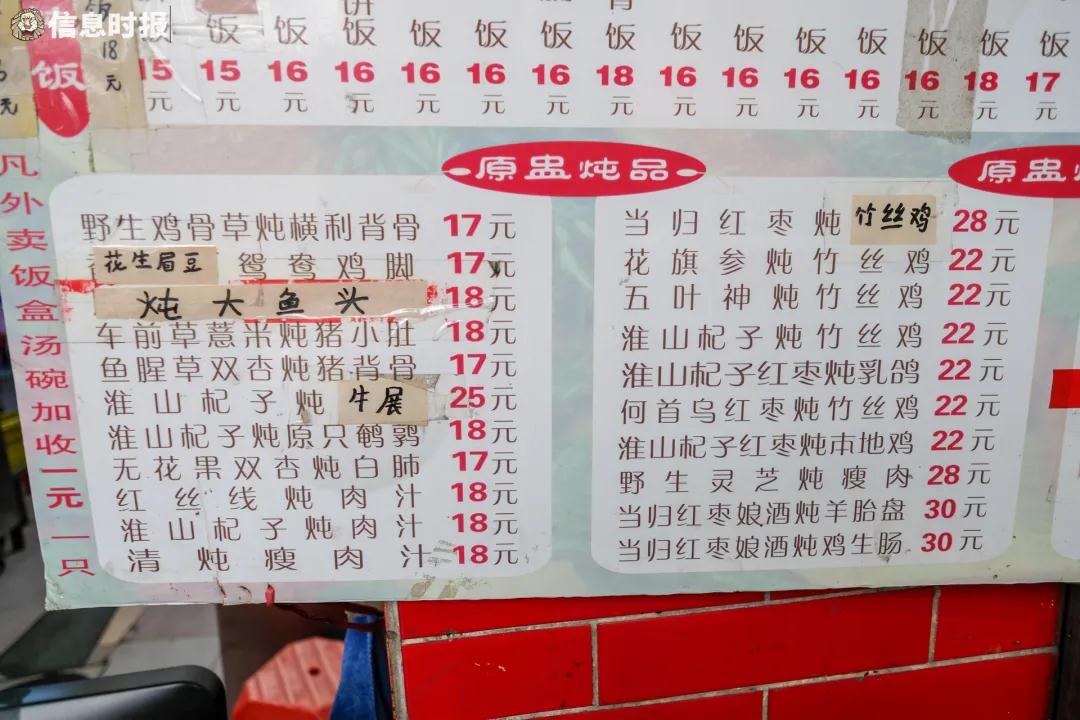 信息时报
饼
饭 饭 饭 饭 饭 饭 饭 饭 饭 饭 饭 饭 饭 饭 饭 饭
饭 18元 15元 15元 16元 16元 16元 16元 16元 18元 16元 16元 16元 16元 16元 18元 17元
凡外卖饭盒汤碗加收一元一只
原盅炖品
野生鸡骨草炖横利背骨 17元
花生眉豆 鸳鸯鸡脚 17元
炖大鱼头 18元
车前草薏米炖猪小肚 18元
鱼腥草双杏炖猪背骨 17元
淮山杞子炖牛展 25元
淮山杞子炖原只鹌鹑 18元
无花果双杏炖白肺 17元
红丝线炖肉汁 18元
淮山杞子炖肉汁 18元
清炖瘦肉汁 18元
当归红枣炖竹丝鸡 28元
花旗参炖竹丝鸡 22元
五叶神炖竹丝鸡 22元
淮山杞子炖竹丝鸡 22元
淮山杞子红枣炖乳鸽 22元
何首乌红枣炖竹丝鸡 22元
淮山杞子红枣炖本地鸡 22元
野生灵芝炖瘦肉 28元
当归红枣娘酒炖羊胎盘 30元
当归红枣娘酒炖鸡生肠 30元
原盅